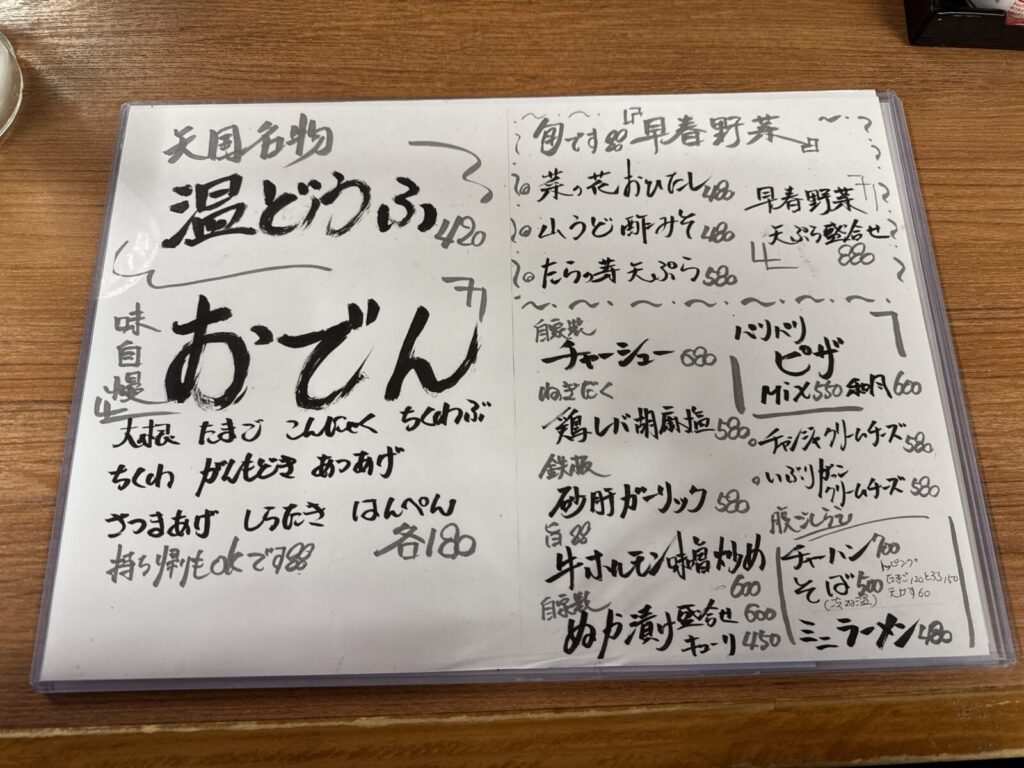 天国名物
温どうふ 420
味自慢
おでん
大根 たまご こんにゃく ちくわぶ
ちくわ がんもどき あつあげ
さつまあげ しらたき はんぺん
持ち帰りもokです!! 各180
旬です!! 早春野菜
菜の花おひたし 480
山うど酢みそ 480
たらの芽天ぷら 580
早春野菜
天ぷら盛合せ
880
自家製
チャーシュー 680
ねぎだく
鶏レバ胡麻塩 580
鉄板
砂肝ガーリック 580
旨!!
牛ホルモン味噌炒め
600
自家製
ぬか漬け盛合せ 600
キューリ 450
パリパリ
ピザ
Mix 550 明太 600
チャンジャクリームチーズ 580
いぶりガッコ
クリームチーズ 580
腹ごしらえ
チャーハン 700
そば 500
(冷or温)
トッピング
たまご120 とろろ150
天かす60
ミニラーメン 480